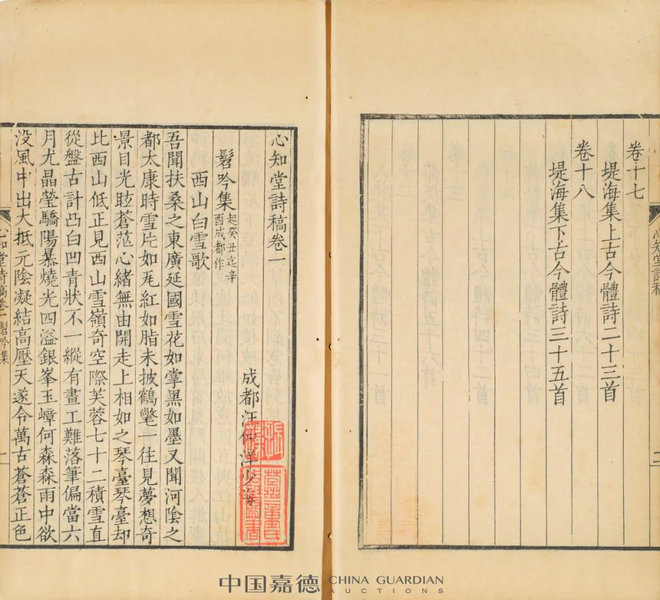 卷十七
堤海集上古今體詩二十三首
卷十八
堤海集下古今體詩三十五首
心知堂詩稿
心知堂詩稿卷一
髫吟集 起癸丑迄辛酉成都作
成都汪仲洋少海
西山白雪歌
吾聞扶桑之東廣延國雪花如掌黑如墨又聞河陰之
都太康時雪片如瓦紅如脂未披鶴氅一往見夢想奇
景目光眩蒼茫心緒無由開走上相如之琴臺琴臺却
比西山低正見西山雪嶺奇空際芙蓉七十二積雪直
從盤古計凸白凹青狀不一縱有畫工難落筆偏當六
月尤晶瑩驕陽暴燒光四溢銀峯玉嶂何森森雨中欲
没風中出大抵元陰凝結高壓天遂令萬古蒼蒼正色
心知堂詩稿卷一 髫吟集
一
中国嘉德 CHINA GUARDIAN
AUCTIONS